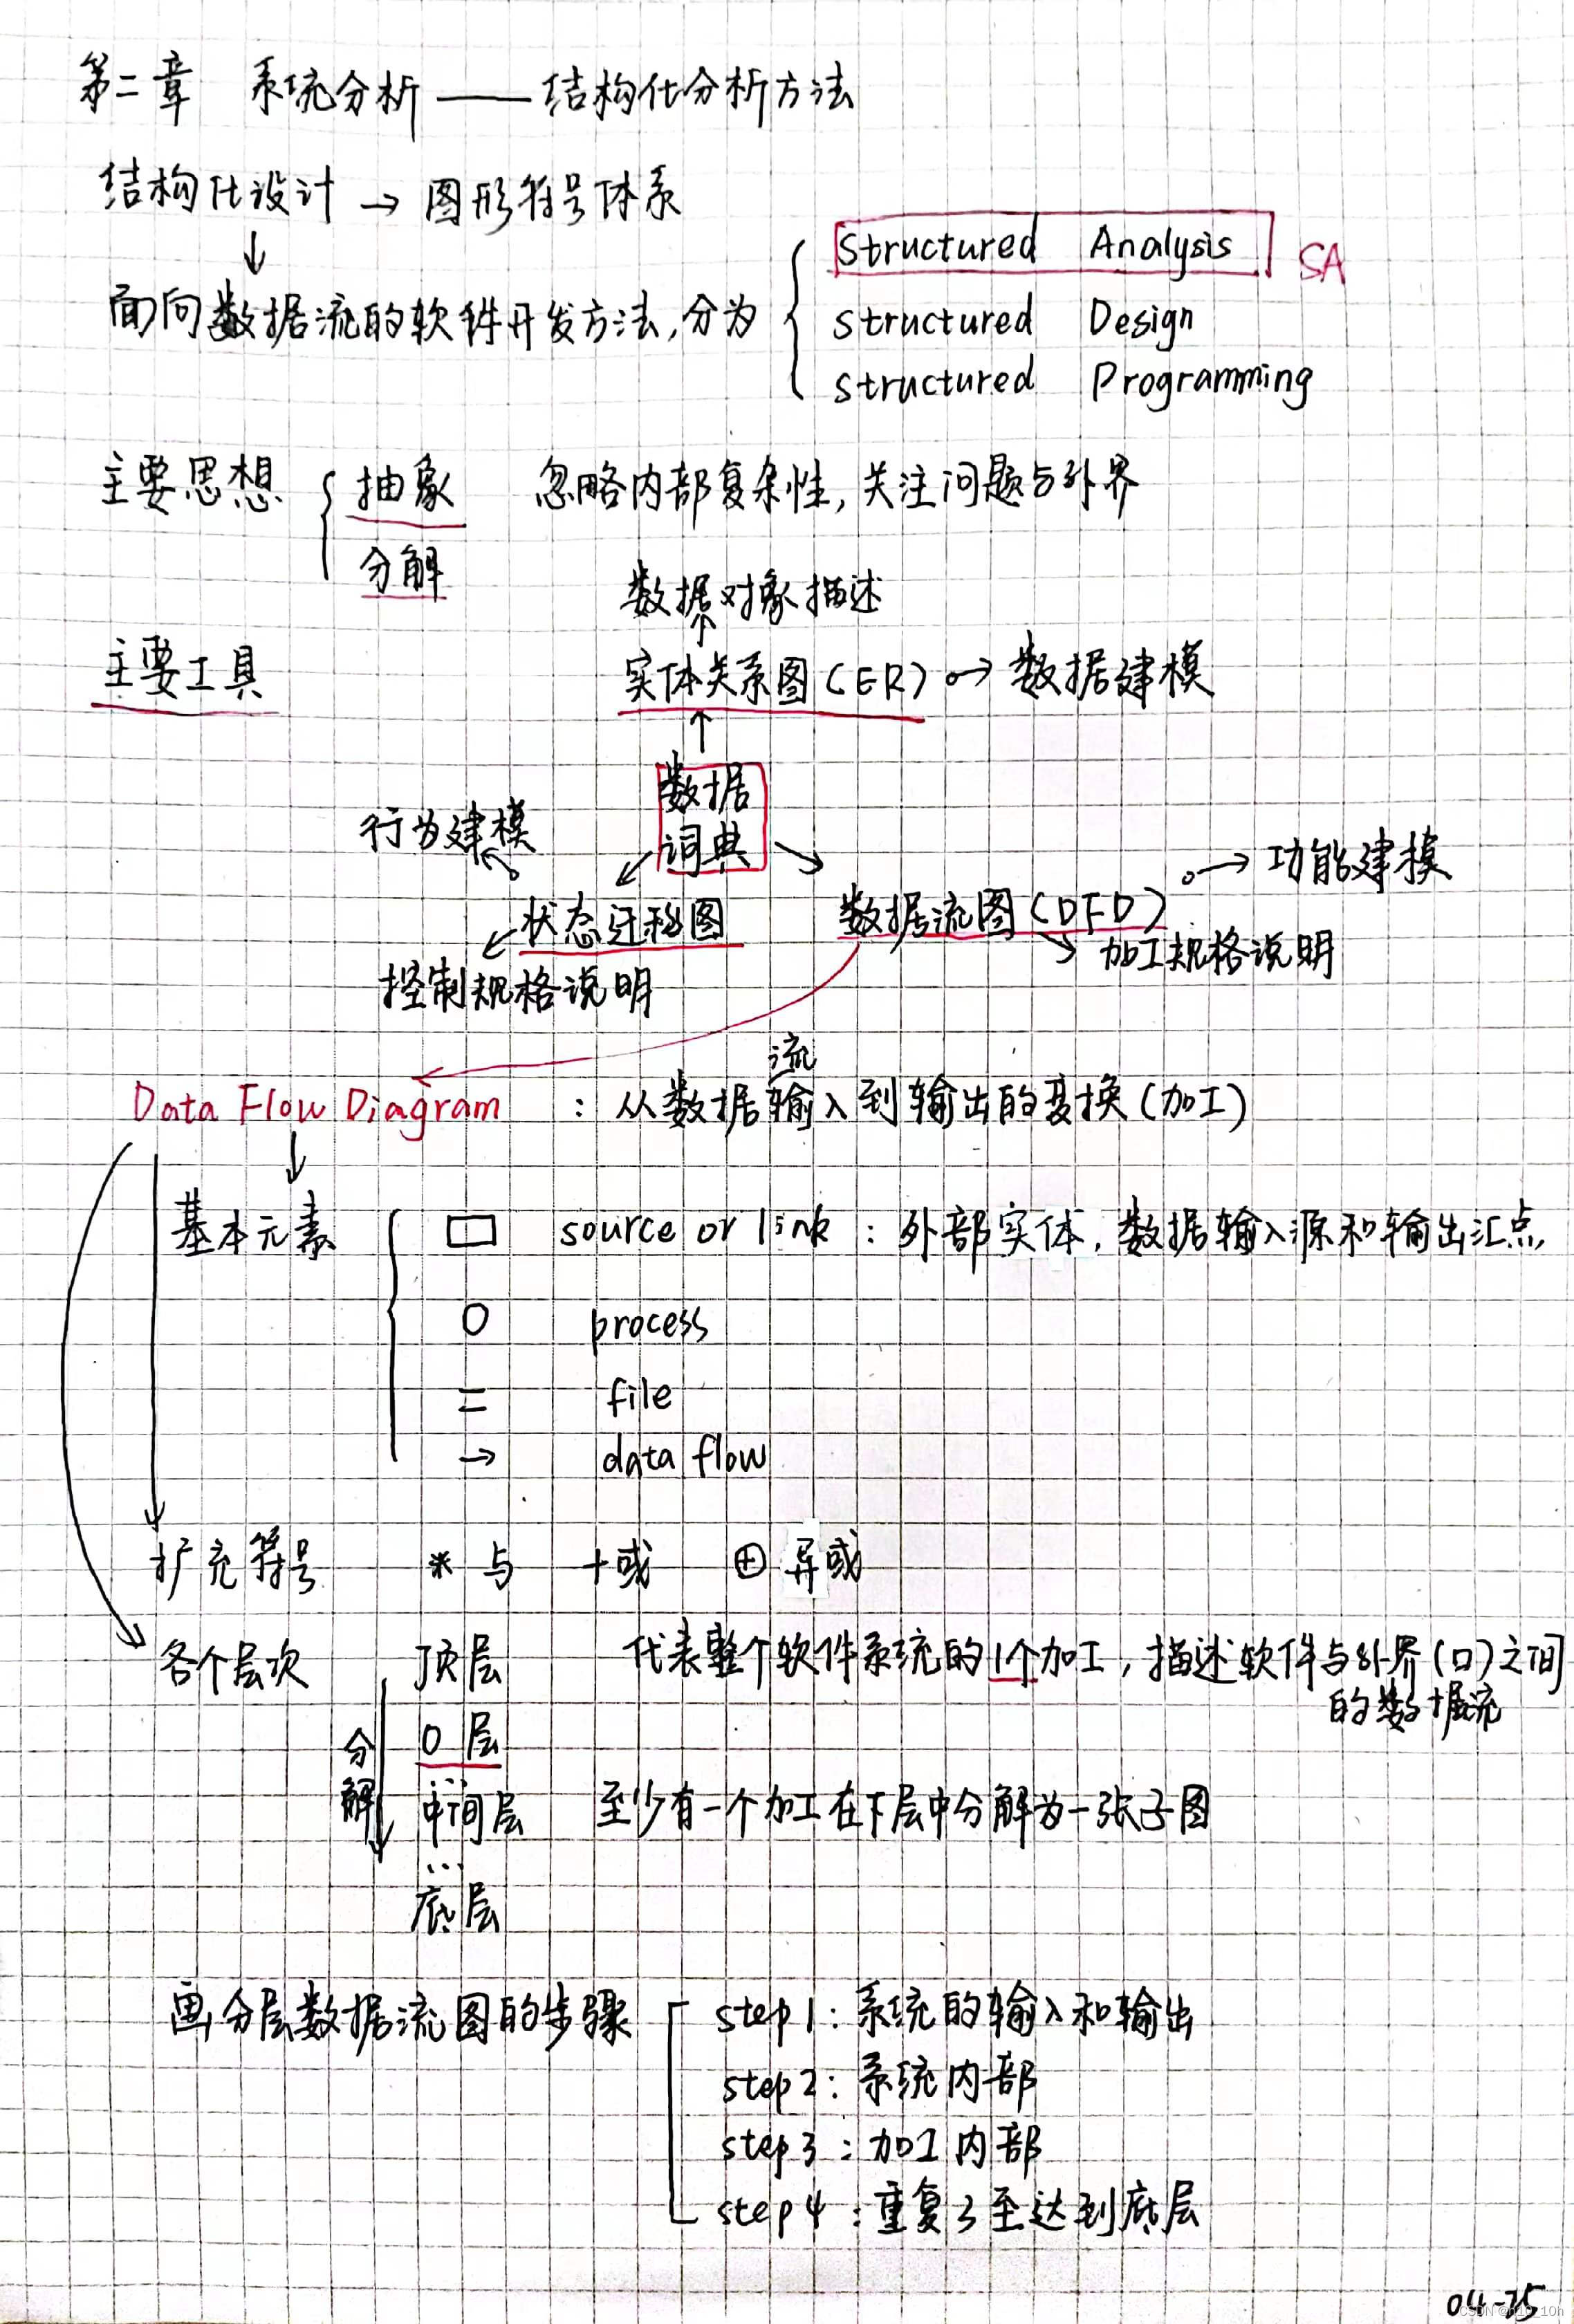 第二章 系统分析——结构化分析方法
结构化设计 → 图形符号体系
↓
面向数据流的软件开发方法,分为
structured Analysis SA
structured Design
structured Programming
主要思想 抽象 忽略内部复杂性,关注问题与外界
分解
数据对象描述
主要工具 实体关系图(ER) → 数据建模
数据
词典
行为建模
功能建模
状态迁移图 数据流图(DFD)
控制规格说明 加工规格说明
流
Data Flow Diagram : 从数据输入到输出的变换(加工)
基本元素 □ source or link : 外部实体,数据输入源和输出汇点
○ process
= file
→ data flow
扩充符号 * 与 +或 ⊕ 异或
各个层次 顶层 代表整个软件系统的1个加工,描述软件与外界(口)之间
的数据流
分解
0层
...
中间层 至少有一个加工在下层中分解为一张子图
...
底层
画分层数据流图的步骤 step1:系统的输入和输出
step2:系统内部
step3:加工内部
step4:重复3至达到底层